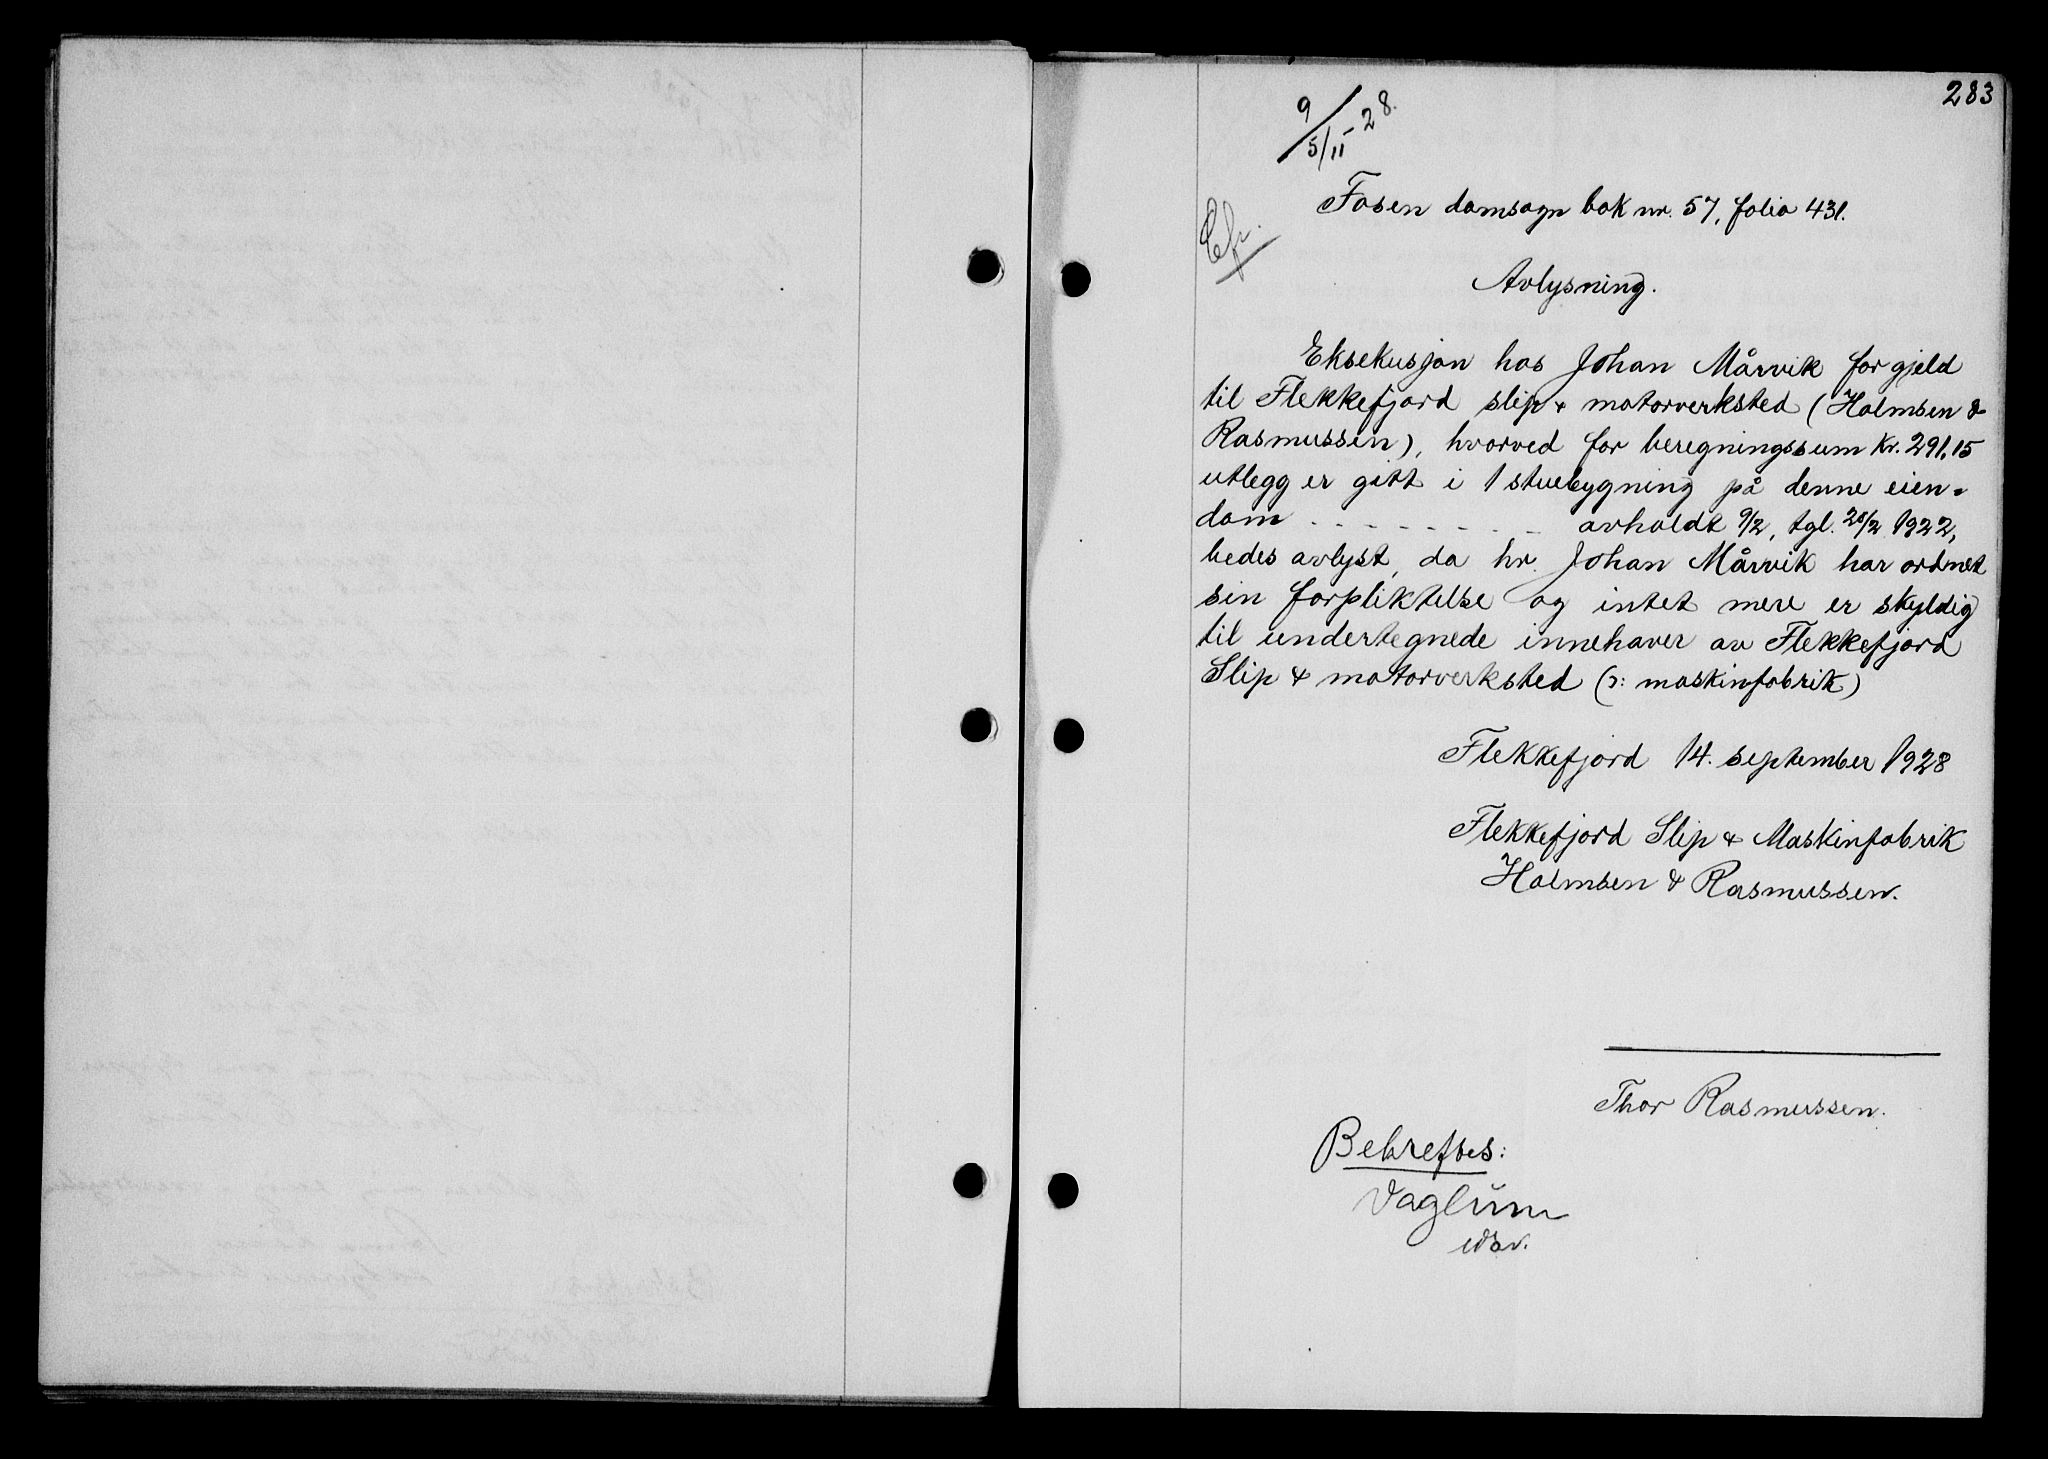 283
9/5/11 28.
Cfr.
Fosen domsogn bok nr. 57, folio 431.
Avlysning.
Eksekusjon hos Johan Mårvik for gjeld
til Flekkefjord slip & motorverksted (Holmsen &
Rasmussen), hvorved for beregningssum Kr. 291,15
utlegg er gitt i 1 stuebygning på denne eien=
dom - - - - - - - - avholdt 9/2, tgl. 28/2 1922,
bedes avlyst, da hr. Johan Mårvik har ordnet
sin forpliktelse og intet mere er skyldig
til undertegnede innehaver av Flekkefjord
Slip & motorverksted (ɔ: maskinfabrik)
Flekkefjord 14. september 1928
Flekkefjord Slip & Maskinfabrik
Holmsen & Rasmussen.
Thor Rasmussen.
Bekreftes:
Vaglum